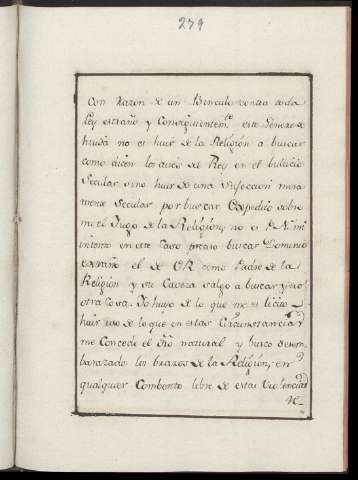 279
con razon de un Vinculo contra toda
Ley extraño y Consiguientemte este Genero de
huida no es huir de la Religion a buscar
como dicen la del Rey en el bullicio
Secular sino huir de una Sugeccion mera
mente Secular por buscar Expedito sobre
mi el Jugo de la Religion, no es P. N. mi
intento en este Caso preciso buscar Dominio
extraño el de CR como Padre de la
Religion y su Caveza salgo a buscar y no
otra Cosa. Yo huyo de lo que me es licito
huir uso de lo que en estas Circunstancias
me Concede el dro natural y busco desem
barazado los brazos de la Religion, en
qualquier Combento libre de estas Violencias